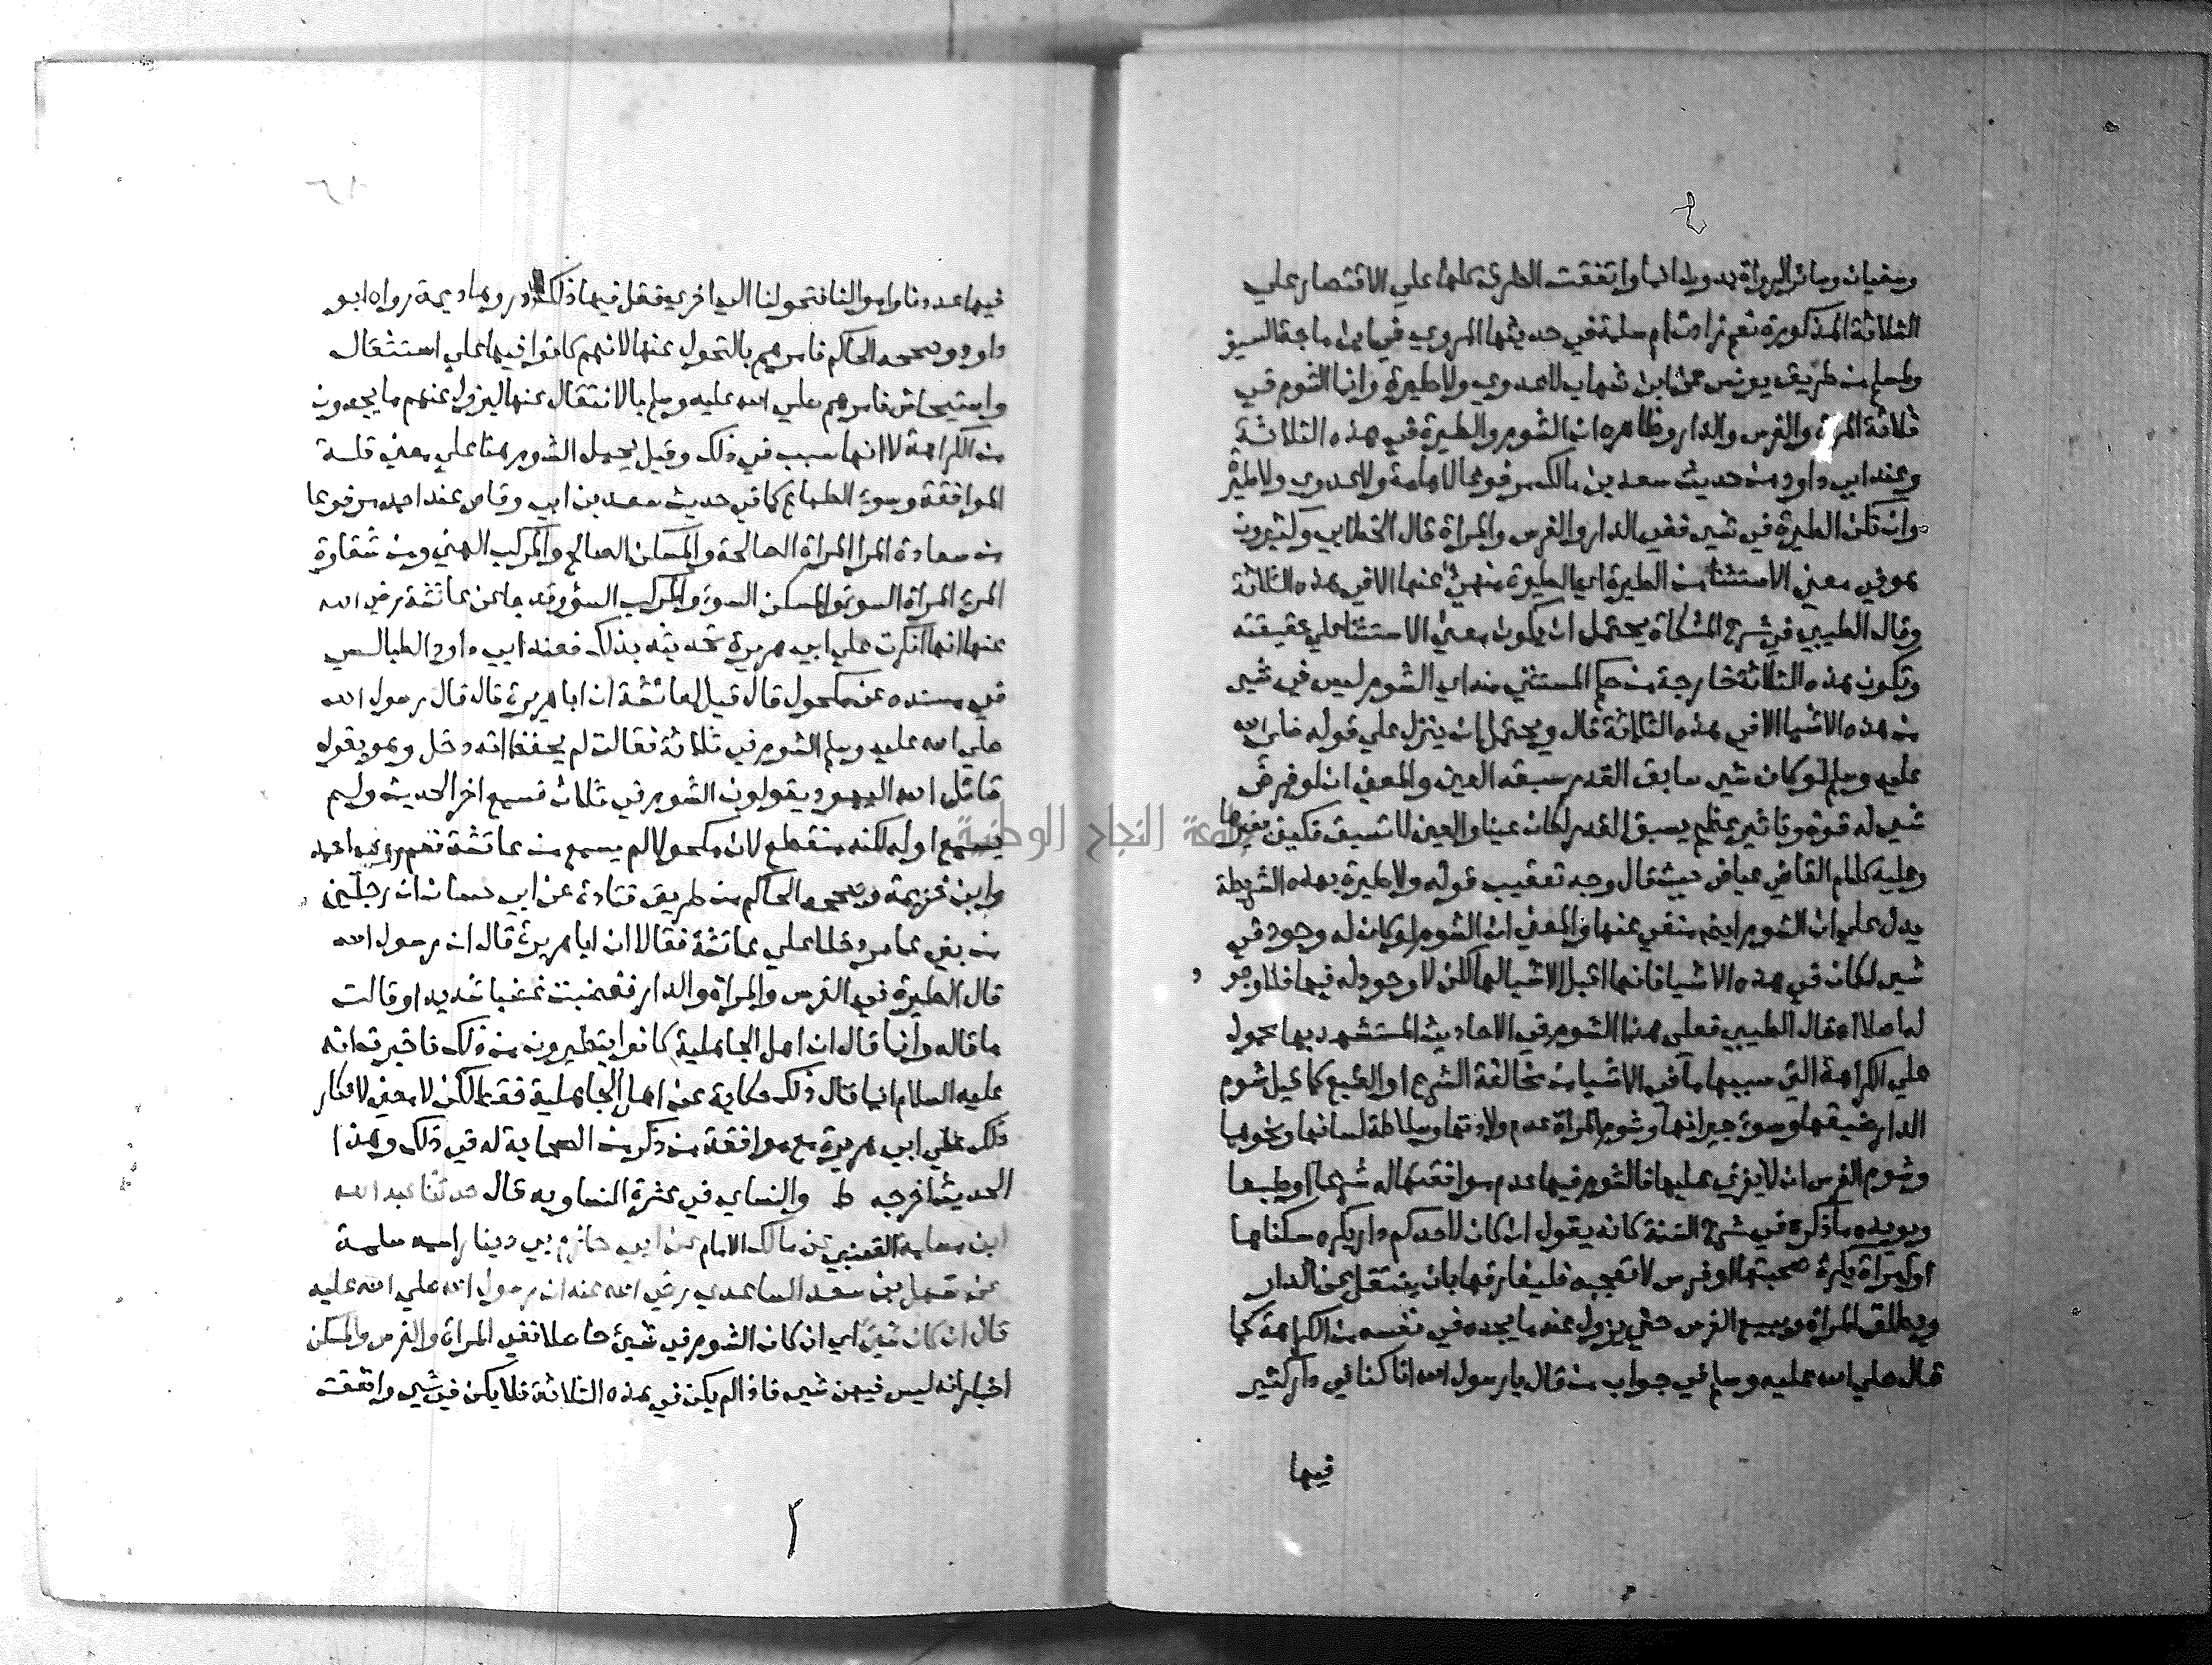 وسفيان وسائر الرواة بدون انما واتفقت الطرق كلها علي الاقتصار علي
الثلاثة المذكورة نعم زادت ام سلمة في حديثها المروي في ابن ماجة السيف
ولمسلم من طريق يونس عن ابن شهاب لا عدوي ولا طيرة وانما الشوم في
ثلاثة المراة والفرس والدار وظاهره ان الشوم والطيرة في هذه الثلاثة
وعند ابي داود من حديث سعد بن مالك مرفوعا لا هامة ولا عدوي ولا طيرة
وان تكن الطيرة في شي ففي الدار والفرس والمراة قال الخطابي وكثيرون
هو في معني الاستثنا من الطيرة اي الطيرة منهي عنها الا في هذه الثلاثة
وقال الطيبي في شرح المشكاة يحتمل ان يكون معني الاستثنا علي حقيقته
وتكون هذه الثلاثة خارجة من حكم المستثني منه اي الشوم ليس في شي
من هذه الاشيا الا في هذه الثلاثة قال ويحتمل ان ينزل علي قوله صلي الله
عليه وسلم لو كان شي سابق القدر سبقه العين والمعني ان لو فرض
شي له قوة وتاثير عظيم يسبق القدر لكان عينا والعين لا تسبق فكيف بغيرها
وعليه كلام القاضي عياض حيث قال وجه تعقيب قوله ولا طيرة بهذه الشريطة
يدل علي ان الشوم ايضم منفي عنها والمعني ان الشوم لو كان له وجود في
شي لكان في هذه الاشيا فانها اقبل الاشيا لها لكن لا وجود له فيها فلا وجو د
له اصلا اه قال الطيبي فعلي هذا الشوم في الاحاديث المستشهد بها محمول
علي الكراهة التي سببها ما في الاشيا من مخالفة الشرع او الطبع كما قيل شوم
الدار ضيقها وسوء جيرانها وشوم المراة عدم ولادتها وسلاطة لسانها ونحوهما
وشوم الفرس ان لا يغزي عليها فالشوم فيها عدم موافقتها له شرعا او طبعا
ويويده ما ذكره في شرح السنة كانه يقول ان كان لاحدكم دار يكره سكناها
او امراة يكره صحبتها او فرس لا تعجبه فليفارقها بان ينتقل عن الدار
ويطلق المراة ويبيع الفرس حتي يزول عنه ما يجده في نفسه من الكراهة كما
قال صلي الله عليه وسلم في جواب من قال يا رسول الله انا كنا في دار كثير
فيها
فيها عددنا واموالنا فتحولنا الي اخري فقل فيها ذلك ذروها دميمة رواه ابو
داود وصححه الحاكم فامرهم بالتحول عنها لانهم كانوا فيها علي استثقال
واستيحاش فامرهم صلي الله عليه وسلم بالانتقال عنها ليزول عنهم ما يجدون
من الكراهة لا انها سبب في ذلك وقيل يحمل الشوم هنا علي معني قلة
الموافقة وسوء الطباع كما في حديث سعد بن ابي وقاص عند احمد مرفوعا
من سعادة المرا المراة الصالحة والمسكن الصالح والمركب الهني ومن شقاوة
المرء المراة السوء والمسكن السوء والمركب السوء وقد جا عن عائشة رضي الله
عنها انها انكرت علي ابي هريرة تحديثه بذلك فعند ابي داود الطيالسي
في مسنده عن مكحول قال قيل لعائشة ان ابا هريرة قال قال رسول الله
صلي الله عليه وسلم الشوم في ثلاثة فقالت لم يحفظ انه دخل وهو يقول
قاتل الله اليهود يقولون الشوم في ثلاث فسمع اخر الحديث ولم
يسمع اوله لكنه منقطع لان مكحولا لم يسمع من عائشة نعم روي احمد
وابن خزيمة وصححه الحاكم من طريق قتادة عن ابي حسان ان رجلين
من بني عامر دخلا علي عائشة فقالا ان ابا هريرة قال ان رسول الله
قال الطيرة في الفرس والمراة والدار فغضبت غضبا شديدا وقالت
ما قاله وانما قال ان اهل الجاهلية كانوا يتطيرون من ذلك فاخبرت انه
عليه السلام انما قال ذلك حكاية عن اهل الجاهلية فقط لكن لا معني لانكار
ذلك علي ابي هريرة مع موافقة من ذكر من الصحابة له في ذلك وهذا
الحديث اخرجه ط والنساي في عشرة النسا وبه قال حدثنا عبد الله
ابن مسلمة القعنبي عن مالك الامام عن ابي حازم بي دينار اسمه سلمة
عن سهل بن سعد الساعدي رضي الله عنه ان رسول الله صلي الله عليه
قال ان كان شي اي ان كان الشوم في شيء حاصلا ففي المراة والفرس والمسكن
اخبار انه ليس فيهن شي فاذا لم يكن في هذه الثلاثة فلا يكن في شي واتفقت
جامعة النجاح الوطنية